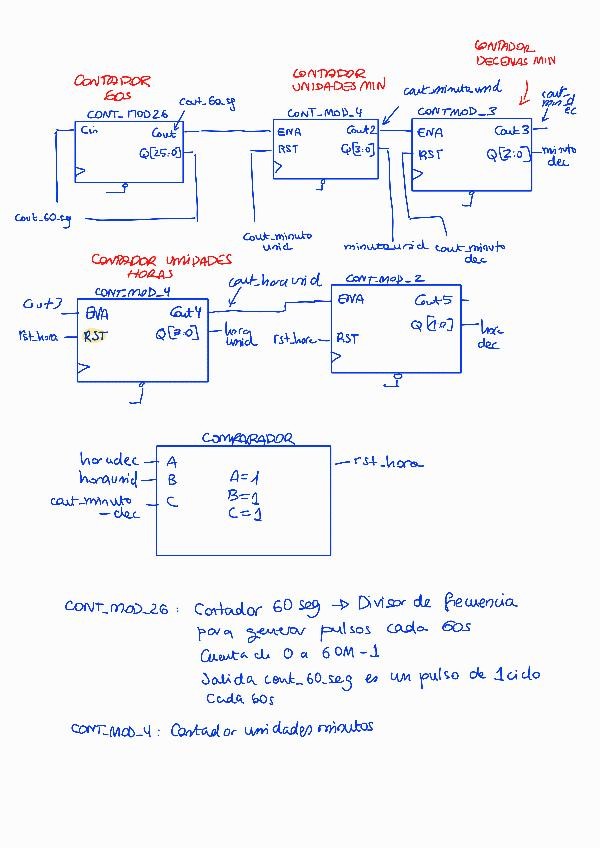 CONTADOR
60S
CONT_MOD26
cout_60_sg
Cin
Cout
Q[25:0]
cout_60_sg
CONTADOR
UNIDADES MIN
CONT_MOD_4
cout_minuto_und
ENA
Cout2
RST
Q[3:0]
cout_minuto
unid
minuto_unid
CONTADOR
DECENAS MIN
CONTMOD_3
ENA
Cout3
RST
Q[2:0]
minuto
dec
cout_minuto
dec
CONTADOR UNIDADES
HORAS
CONT_MOD_4
cout_hora_unid
Cout3
ENA
Cout4
rst_hora
RST
Q[3:0]
hora
unid
CONT_MOD_2
ENA
Cout5
rst_hora
RST
Q[1:0]
hora
dec
COMPARADOR
horadec
A
rst_hora
horaunid
B
A=1
cout_minuto
_dec
C
B=1
C=1
CONT_MOD_26: Contador 60 seg → Divisor de frecuencia
para generar pulsos cada 60s
Cuenta de 0 a 60M-1
Salida cont_60_seg es un pulso de 1 ciclo
cada 60s
CONT_MOD_4: Contador unidades minutos